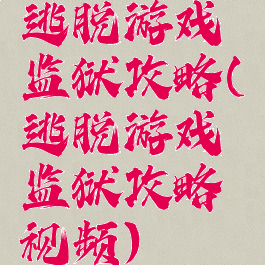 逃脱游戏
监狱攻略(
逃脱游戏
监狱攻略
视频)